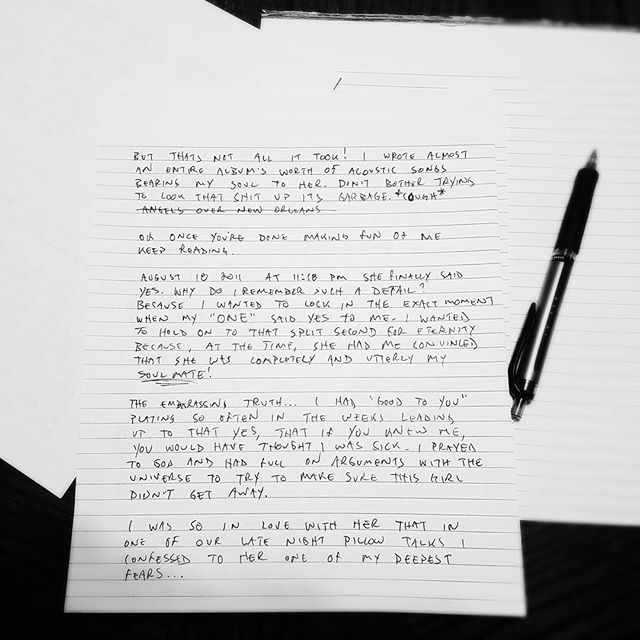 BUT THATS NOT ALL IT TOOK! I WROTE ALMOST
AN ENTIRE ALBUM'S WORTH OF ACOUSTIC SONGS
BEARING MY SOUL TO HER. DON'T BOTHER TRYING
TO LOOK THAT SHIT UP ITS GARBAGE. *COUGH*
ANGELS OVER NEW ORLEANS
OK ONCE YOU'RE DONE MAKING FUN OF ME
KEEP READING.
AUGUST 18 2011 AT 11:18 PM SHE FINALLY SAID
YES. WHY DO I REMEMBER SUCH A DETAIL?
BECAUSE I WANTED TO LOCK IN THE EXACT MOMENT
WHEN MY "ONE" SAID YES TO ME. I WANTED
TO HOLD ON TO THAT SPLIT SECOND FOR ETERNITY
BECAUSE, AT THE TIME, SHE HAD ME CONVINCED
THAT SHE WAS COMPLETELY AND UTTERLY MY
SOUL MATE!
THE EMBARASSING TRUTH... I HAD "GOOD TO YOU"
PLAYING SO OFTEN IN THE WEEKS LEADING
UP TO THAT YES, THAT IF YOU KNEW ME,
YOU WOULD HAVE THOUGHT I WAS SICK. I PRAYED
TO GOD AND HAD FULL ON ARGUMENTS WITH THE
UNIVERSE TO TRY TO MAKE SURE THIS GIRL
DIDN'T GET AWAY.
I WAS SO IN LOVE WITH HER THAT IN
ONE OF OUR LATE NIGHT PILLOW TALKS I
CONFESSED TO HER ONE OF MY DEEPEST
FEARS...